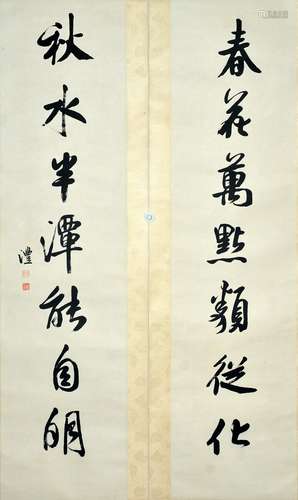 春花萬點類從化
秋水半潭能自明
澧